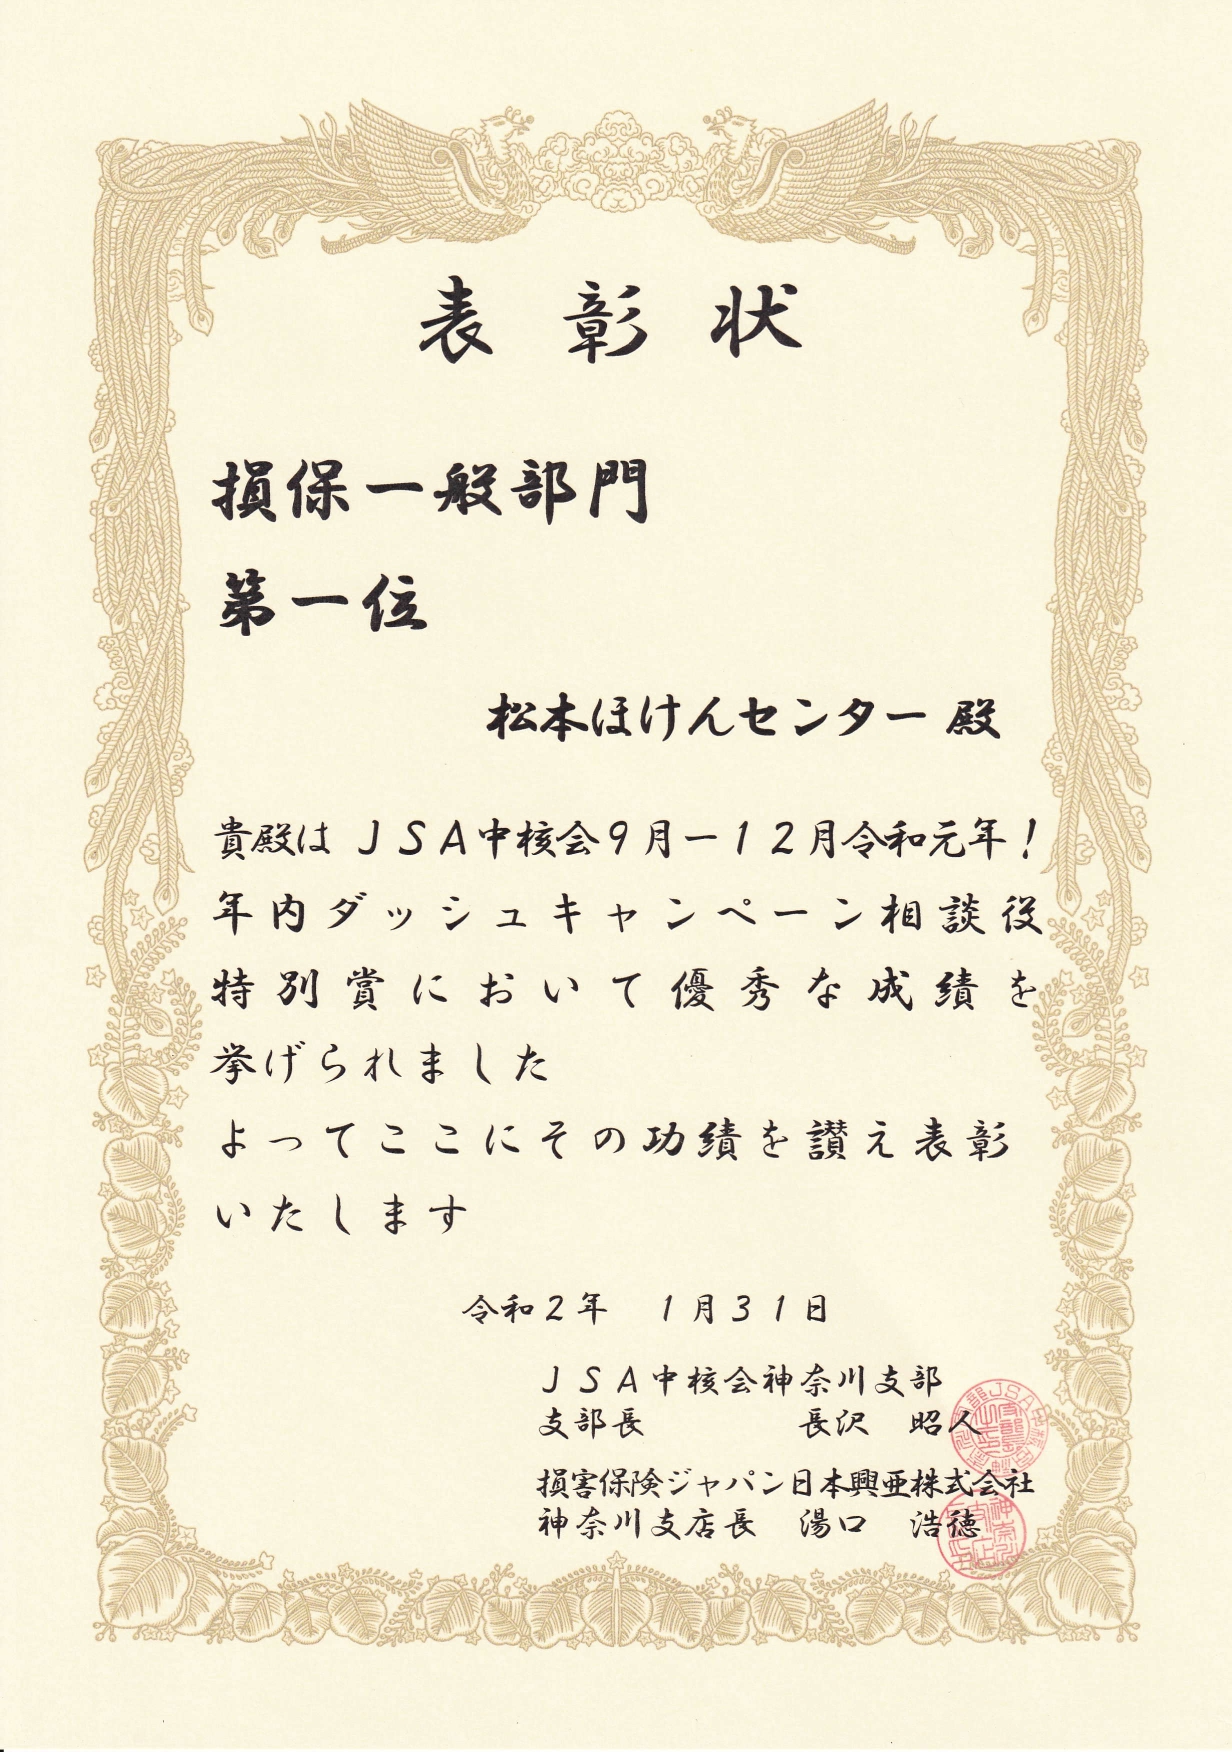 表彰状
損保一般部門
第一位
松本ほけんセンター 殿
貴殿は ＪＳＡ中核会９月ー１２月令和元年！
年内ダッシュキャンペーン相談役
特別賞において優秀な成績を
挙げられました
よってここにその功績を讃え表彰
いたします
令和２年　１月３１日
ＪＳＡ中核会神奈川支部
支部長　長沢　昭人
損害保険ジャパン日本興亜株式会社
神奈川支店長　湯口　浩徳